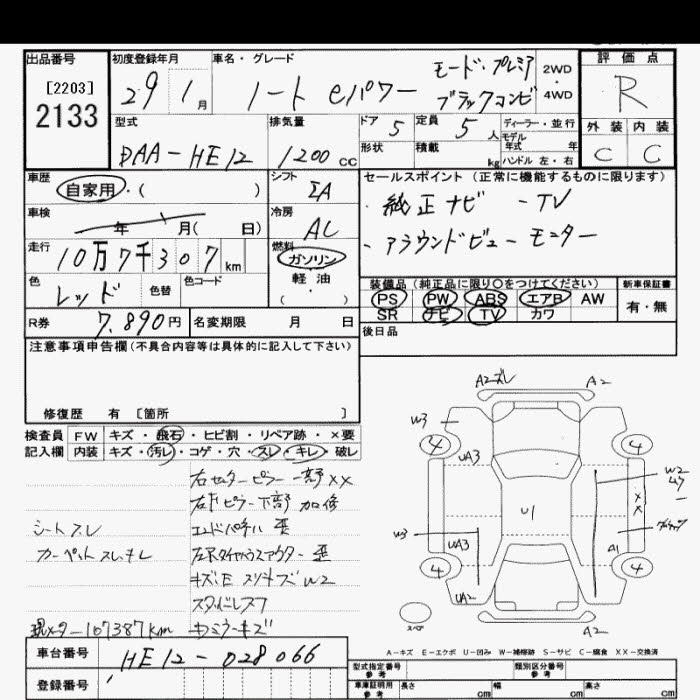 出品番号
[2203]
2133
初度登録年月
29 1月
車名・グレード
ノート eパワー
モード・プレミア
ブラックコンビ
2WD
4WD
評価点
R
型式
DAA-HE12
排気量
1200cc
ドア 5
定員 5人
ディーラー・並行
モデル年式 年
形状
積載 kg
ハンドル 左・右
外装 内装
C C
車歴
自家用・( )
シフト
ΣA
セールスポイント(正常に機能するものに限ります)
・純正ナビ -TV
- アラウンドビューモニター
車検
年 月( 日)
冷房
AC
走行
10万7千307km
燃料
ガソリン
軽油
( )
色
レッド
色替
色コード
装備品(純正品に限り○をつけてください)
PS PW ABS エアB AW
SR ナビ TV カワ
新車保証書
有・無
R券
7,890円
名変期限 月 日
後日品
注意事項申告欄(不具合内容等は具体的に記入して下さい)
修復歴 有 [箇所 ]
検査員 FW キズ・飛石・ヒビ割・リペア跡・×要
記入欄 内装 キズ・汚レ・コゲ・穴・スレ・キレ・破レ
右センターピラー一部××
右Fピラー下部 加修
シートスレ
エンドパネル 歪
カーペットスレ・キレ
左Rタイヤハウスアウター 歪
スタッドレス7
現メーター107387km
車台番号 HE12-028066
登録番号
A2ズレ A2
W3
4 4
UA3
W2
U1
××
W3
UA3
A1
4 4
UA2
スペア
A2
A-キズ E-エクボ U-凹み W-補修跡 S-サビ C-腐食 XX-交換済
型式指定番号 参考
類別区分番号 参考
車庫証明用 参考
長さ cm 幅 cm 高さ cm